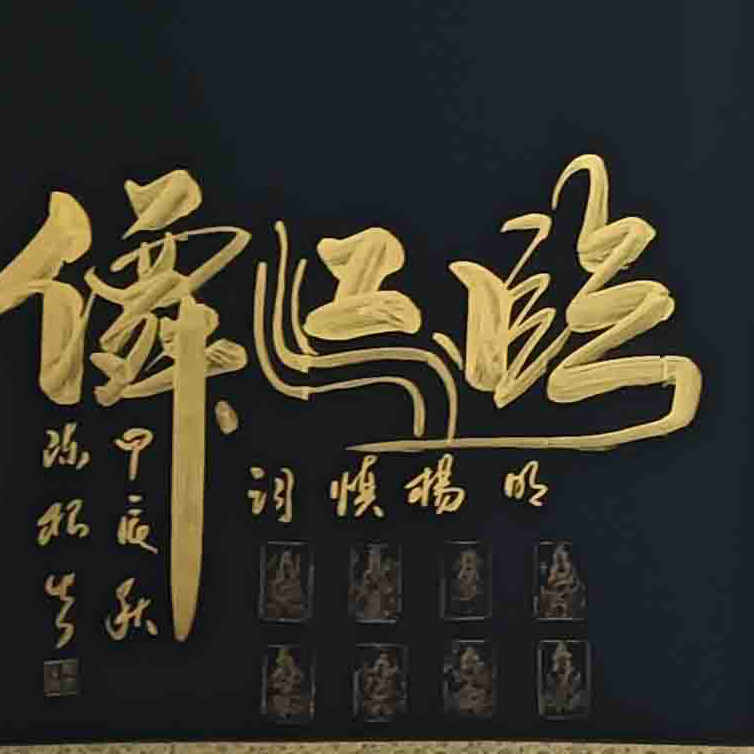 臨江僊
明楊慎詞
甲辰秋